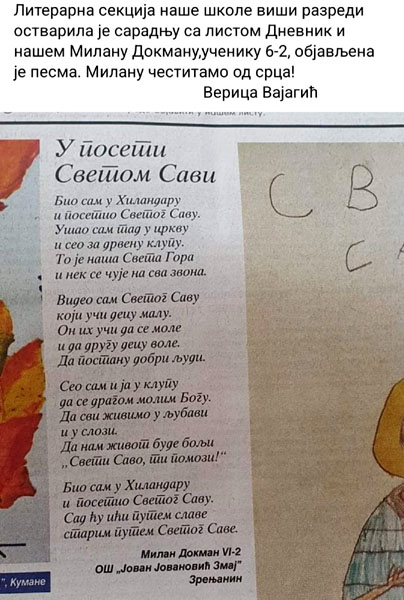 Литерарна секција наше школе виши разреди
остварила је сарадњу са листом Дневник и
нашем Милану Докману,ученику 6-2, објављена
је песма. Милану честитамо од срца!
Верица Вајагић
у нашем листу.
У посети
Светом Сави
Био сам у Хиландару
и посетио Светог Саву.
Ушао сам тад у цркву
и сео за дрвену клупу.
То је наша Света Гора
и нек се чује на сва звона.
Видео сам Светог Саву
који учи децу малу.
Он их учи да се моле
и да другу децу воле.
Да постану добри људи.
Сео сам и ја у клупу
да се драгом молим Богу.
Да сви живимо у љубави
и у слози.
Да нам живот буде бољи
„Свети Саво, ти помози!“
Био сам у Хиландару
и посетио Светог Саву.
Сад ћу ићи путем славе
старим путем Светог Саве.
Милан Докман VI-2
ОШ „Јован Јовановић Змај“
Зрењанин
", Кумане
С В
С